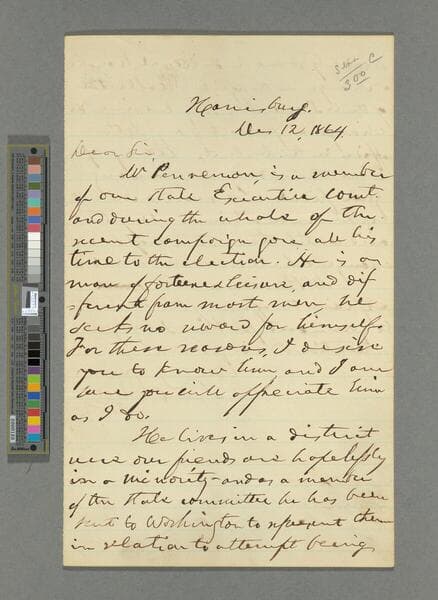 Harrisburg.
Dec 12, 1864.
Dear Sir,
Mr is a member
of our State Executive Comt.
and during the whole of the
recent campaign gave all his
time to the election. He is a
man of fortune & leisure, and dif
ferent from most men he
seeks no reward for himself.
For these reasons, I desire
you to know him and I am
sure you will appreciate him
as I do.
He lives in a district
were our friends are hopelessly
in a minority - and as a member
of the State committee he has been
sent to Washington to represent them
in relation to attempt being
300